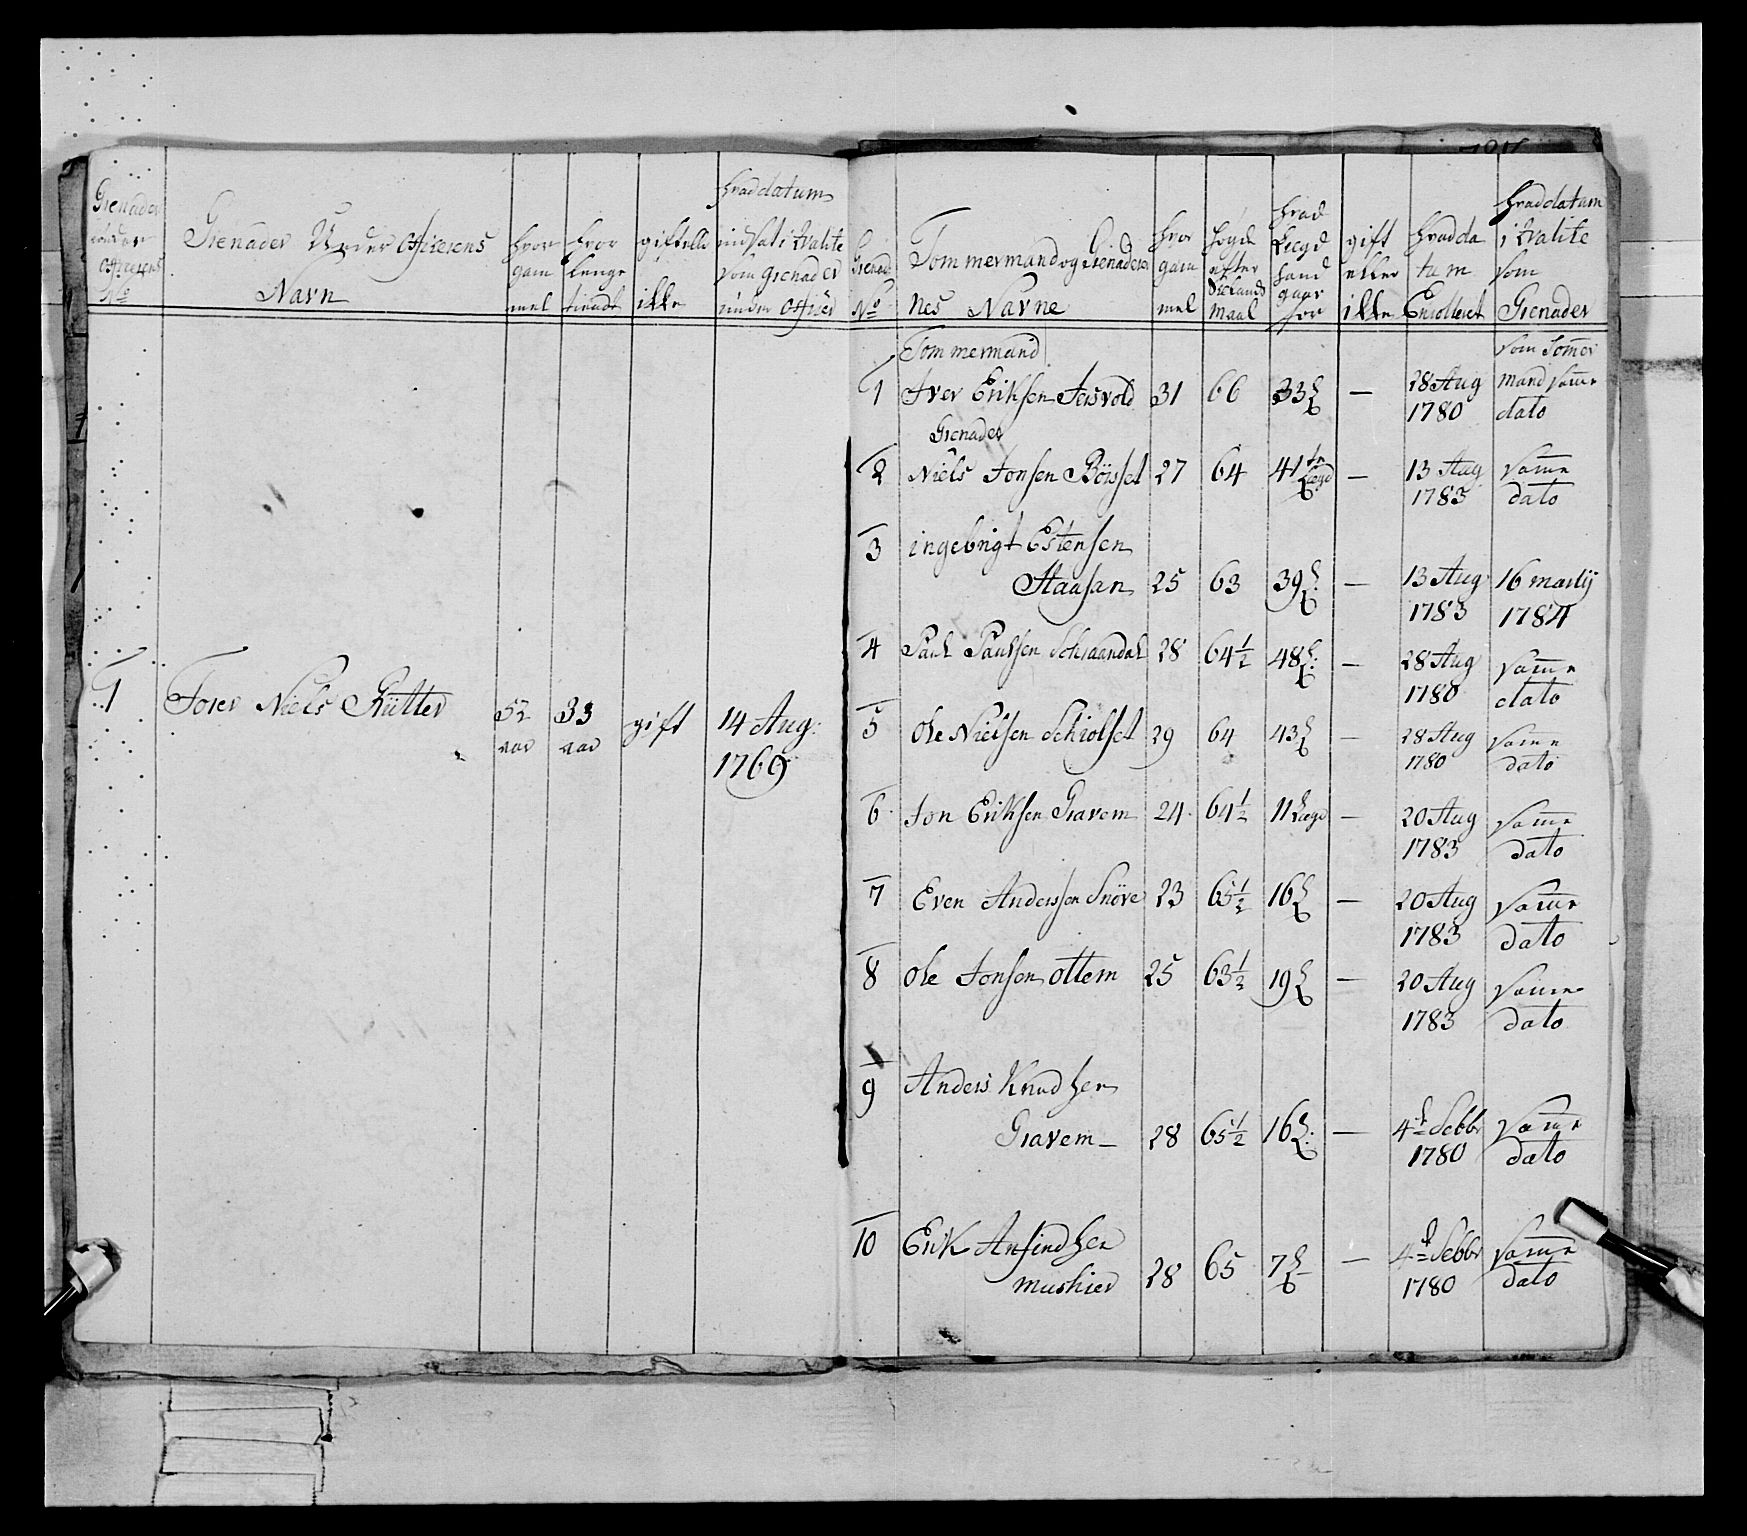 Grenader
under
Officerens
No
Grenader Under Officerens
Navn
hvor
gam
mel
hvor
lenge
tiendt
gift elle
ikke
hvad datum
indsat i kvalite
som Grenader
under Officer
1
Forer Niels Rütter
52
aar
33
aar
gift
14 Aug:
1769
Grenad
No
Tommermand og Grenaderer
nes Navne
hvor
gam
mel
høyde
efter
Sielands
maal
hvad
Legd
hand
gaar
for
gift
eller
ikke
hvad da
tum
Enrolleret
hvad datum
i kvalite
som
Grenader
Tommermand
1 Iver Eriksen Jersvold 31 66 33 L — 28 Aug 1780 som Tomer mand same dato
Grenader
2 Niels Jonsen Börsset 27 64 41 Legd — 13 Aug 1783 same dato
3 ingebrigt Estensen
Staasan 25 63 39 L: — 13 Aug 1783 16 martij 1784
4 Paul Paulsen Schraandal 28 64½ 48 L: — 28 Aug 1780 same dato
5 Ole Nielsen Schiolset 29 64 43 L — 28 Aug 1780 same dato
6 Jon Eriksen Gravem 24 64½ 11 Legd — 20 Aug 1783 same dato
7 Even Anderssen Snöve 23 65½ 16 L — 20 Aug 1783 same dato
8 Ole Jonsen Ottem 25 63½ 19 L — 20 Aug 1783 same dato
9 Anders Knudsen
Gravem — 28 65½ 16 L: — 4de Sebbr 1780 same dato
10 Erik Ansindsen
mushier 28 65 7 L — 4de Sebbr 1780 same dato